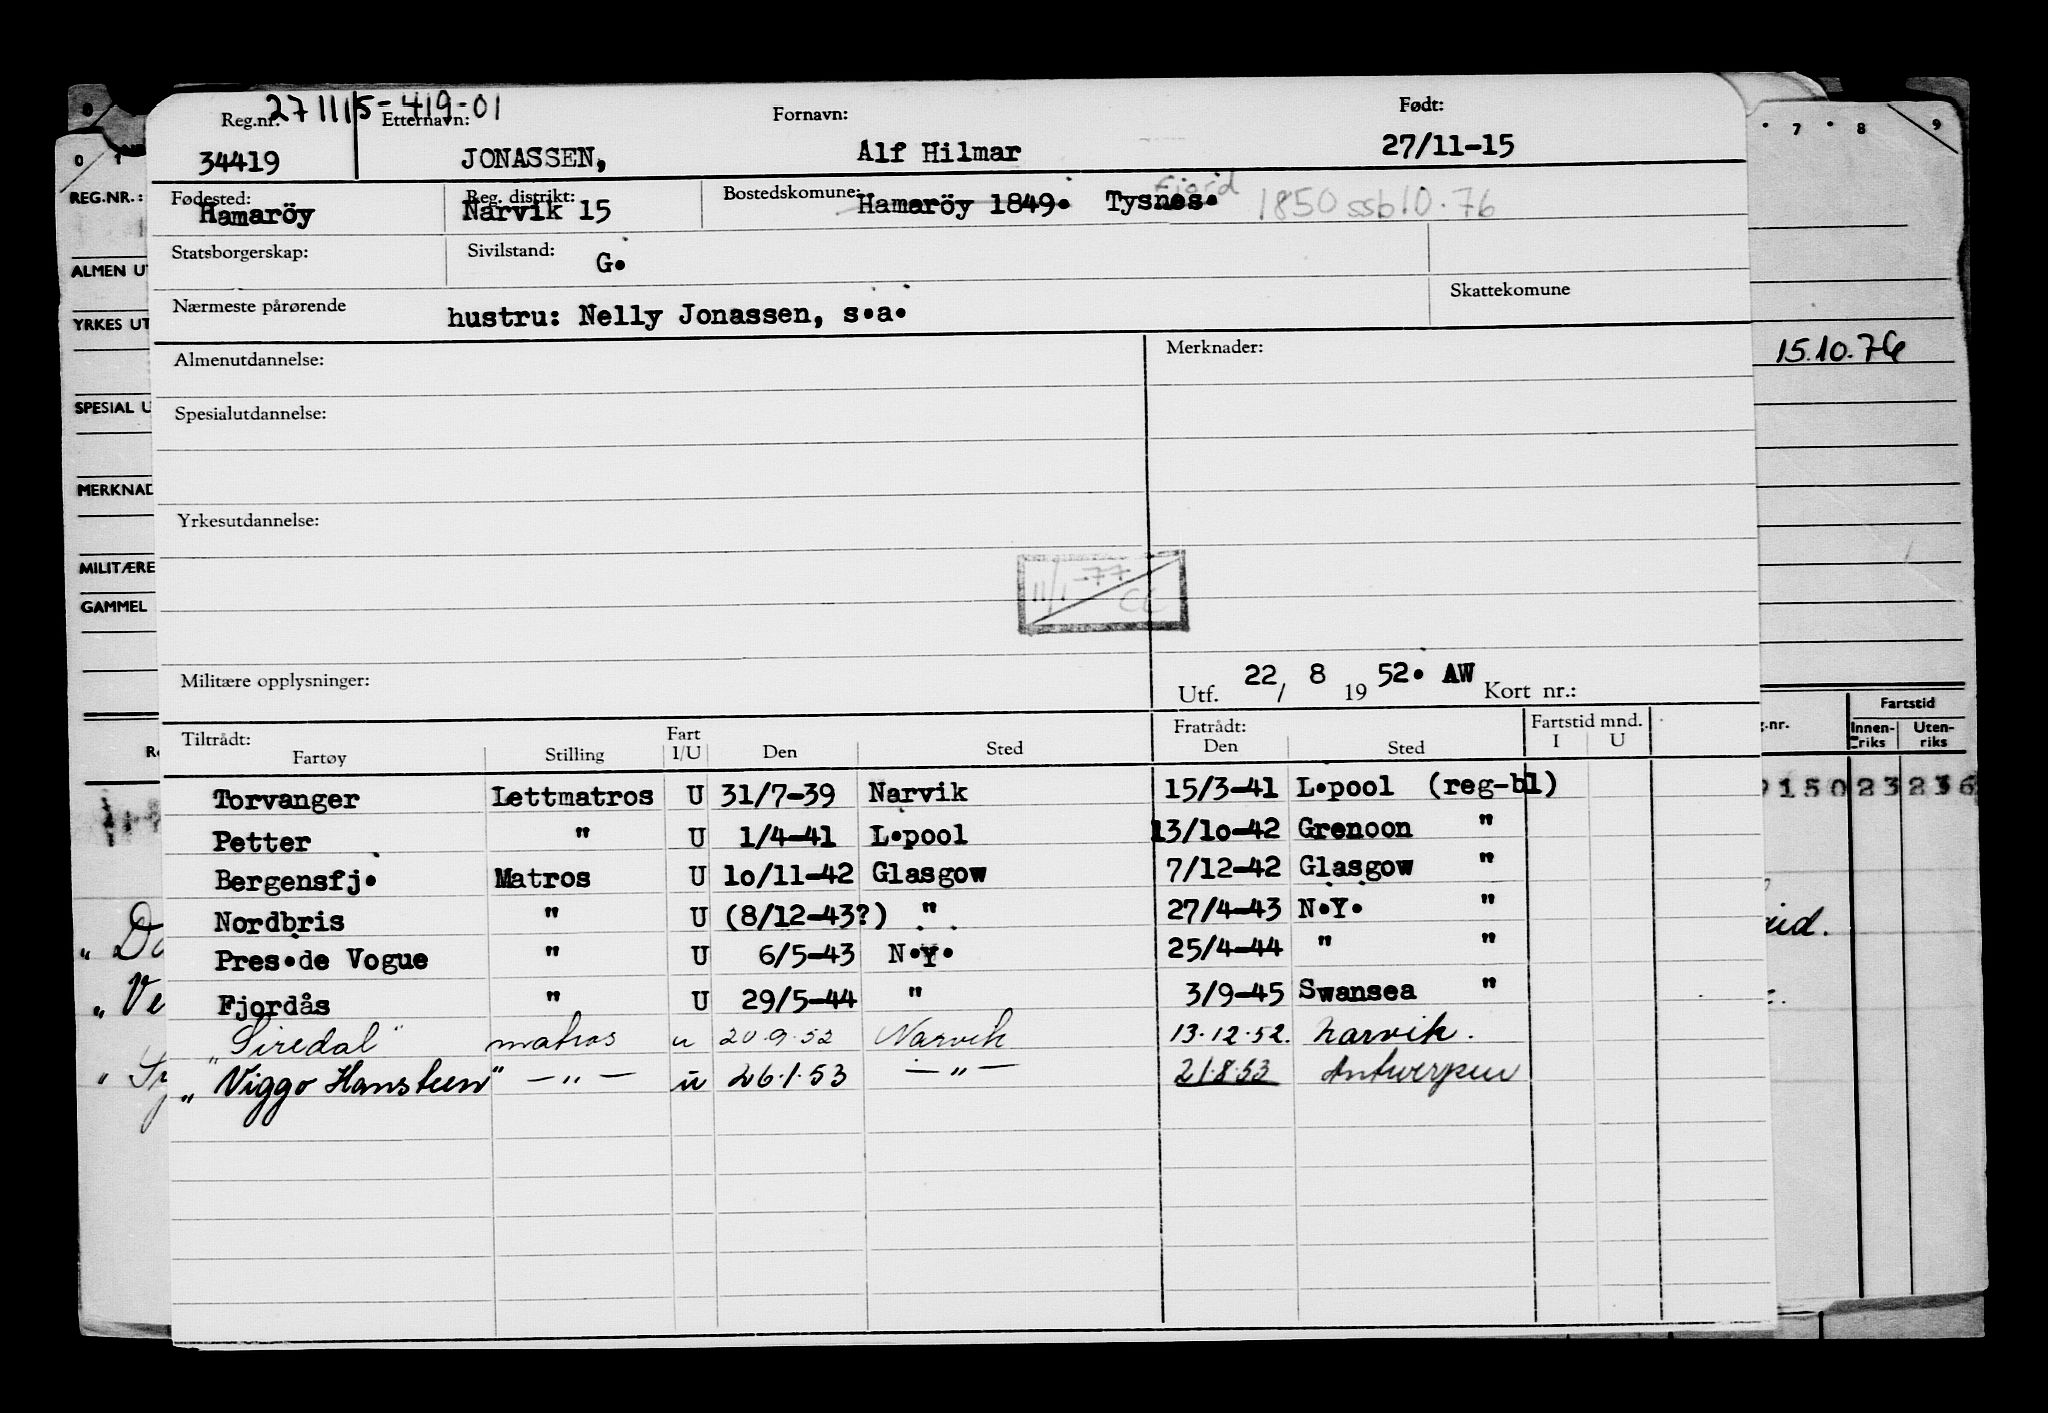 271115-419-01
Reg.nr. Etternavn: Fornavn: Født:
34419 JONASSEN, Alf Hilmar 27/11-15
Fødested: Reg. distrikt: Bostedskomune:
Hamaröy Narvik 15 Hamaröy 1849. Tysnes. fjord 1850 ssb10.76
Statsborgerskap: Sivilstand: G.
Nærmeste pårørende hustru: Nelly Jonassen, s.a. Skattekomune
Almenutdannelse: Merknader:
Spesialutdannelse:
Yrkesutdannelse:
11/1-77
CC
Militære opplysninger: Utf. 22/ 8 19 52. AW Kort nr.:
Tiltrådt: Fart Fratrådt: Fartstid mnd.
Fartøy Stilling I/U Den Sted Den Sted I U
Torvanger Lettmatros U 31/7-39 Narvik 15/3-41 L.pool (reg-bl)
Petter " U 1/4-41 L.pool 13/10-42 Grenoon "
Bergensfj. Matros U 10/11-42 Glasgow 7/12-42 Glasgow "
Nordbris " U (8/12-43?) " 27/4-43 N.Y. "
Pres.de Vogue " U 6/5-43 N.Y. 25/4-44 " "
Fjordås " U 29/5-44 " 3/9-45 Swansea "
"Siredal" matros u 20.9.52 Narvik 13.12.52. narvik.
"Viggo Hansteen" -"- u 26.1.53 -"- 21.8.53 Antwerpen
0 1
REG.NR.:
ALMEN UT
YRKES UT
SPESIAL U
MERKNAD
MILITÆRE
GAMMEL
7 8 9
15.10.76
g.nr. Fartstid
Innen-riks Uten-riks
150 23 236